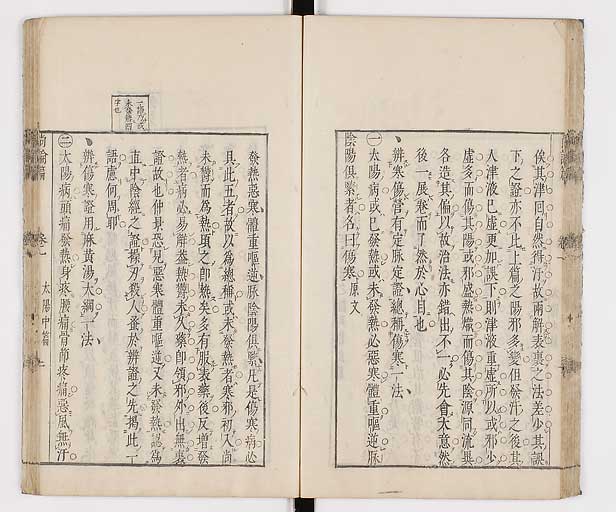 俟其津回自然得汗故兩解表裏之法差少其誤
下之證亦不比上篇之陽邪多變但發汗之後其
人津液巳虛更加誤下則津液重虛所以或邪少
虛多而傷其陽或邪盛熱熾而傷其陰源同流異
各造其偏以故治法亦錯出不一必先會大意然
後一展卷而了然於心目也
辨寒傷營有定脉定證總稱傷寒一法
㊀太陽病或巳發熱或未發熱必惡寒體重嘔逆脉
陰陽俱緊者名曰傷寒 原文
發熱惡寒體重嘔逆脉陰陽俱緊凡是傷寒病必
具此五者故以爲總稱或未發熱者寒邪初入尚
未鬱而爲熱頃之卽熱矣多有服表藥後反增發
熱者病必易解葢熱鬱未久藥卽領邪外出無裏
證故也仲景恐見惡寒體重嘔逆又未發熱認爲
直中陰經之證操刃殺人蚤於辨證之先揭此一
語慮何周耶
辨傷寒證用麻黃湯大綱一法
㊁太陽病頭痛發熱身疼腰痛骨節疼痛惡風無汗
尚論篇
卷一
太陽中篇